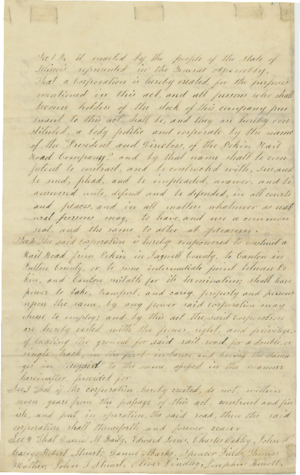 Sec 1 Be it enacted by the people of the state of
Illinois represented in the General Assembly,
That a corporation is hereby created for the purposes
mentioned in this act, and all persons who shall
become holders of the stock of this company pur
suant to this act, shall be, and they are hereby con
stituted, a body politic and corporate by the name
of the "President and Directors of the Pekin Rail
Road Company," and by that name shall be com
petent to contract, and be contracted with, sue and
be sued, plead, and be impleaded, answer, and be
answered unto, defend and be defended, in all courts
and places, and in all matters whatsoever as nat
ural persons may, to have and use a common
seal, and the same to alter at pleasure.
Sec 2 The said corporation is hereby empowered to construct a
Rail Road from Pekin in Tazewell County, to Canton in
Fulton County, or to some intermediate point between Pe
kin, and Canton suitable for its termination; shall have
power to take, transport, and carry, property and persons
upon the same, by any power said corporation may
chose to employ; and by this act the said corporation
are hereby vested with the power, right, and privilege
of the ground for said rail road, for a double, or
single track, in first instance and having the damag
ges in regard to the same in the manner
hereinafter provided for
Sec 3 That if the corporation hereby created, do not, within
years from the passage of this act, construct and fin
ish, and put in operation, the said road, then the said
corporation shall thenceforth, and forever cease
Sec 4 That Edward Jones, Charles Oakley, John
Robert Stuart, Spencer Field,
John T. Stuart,